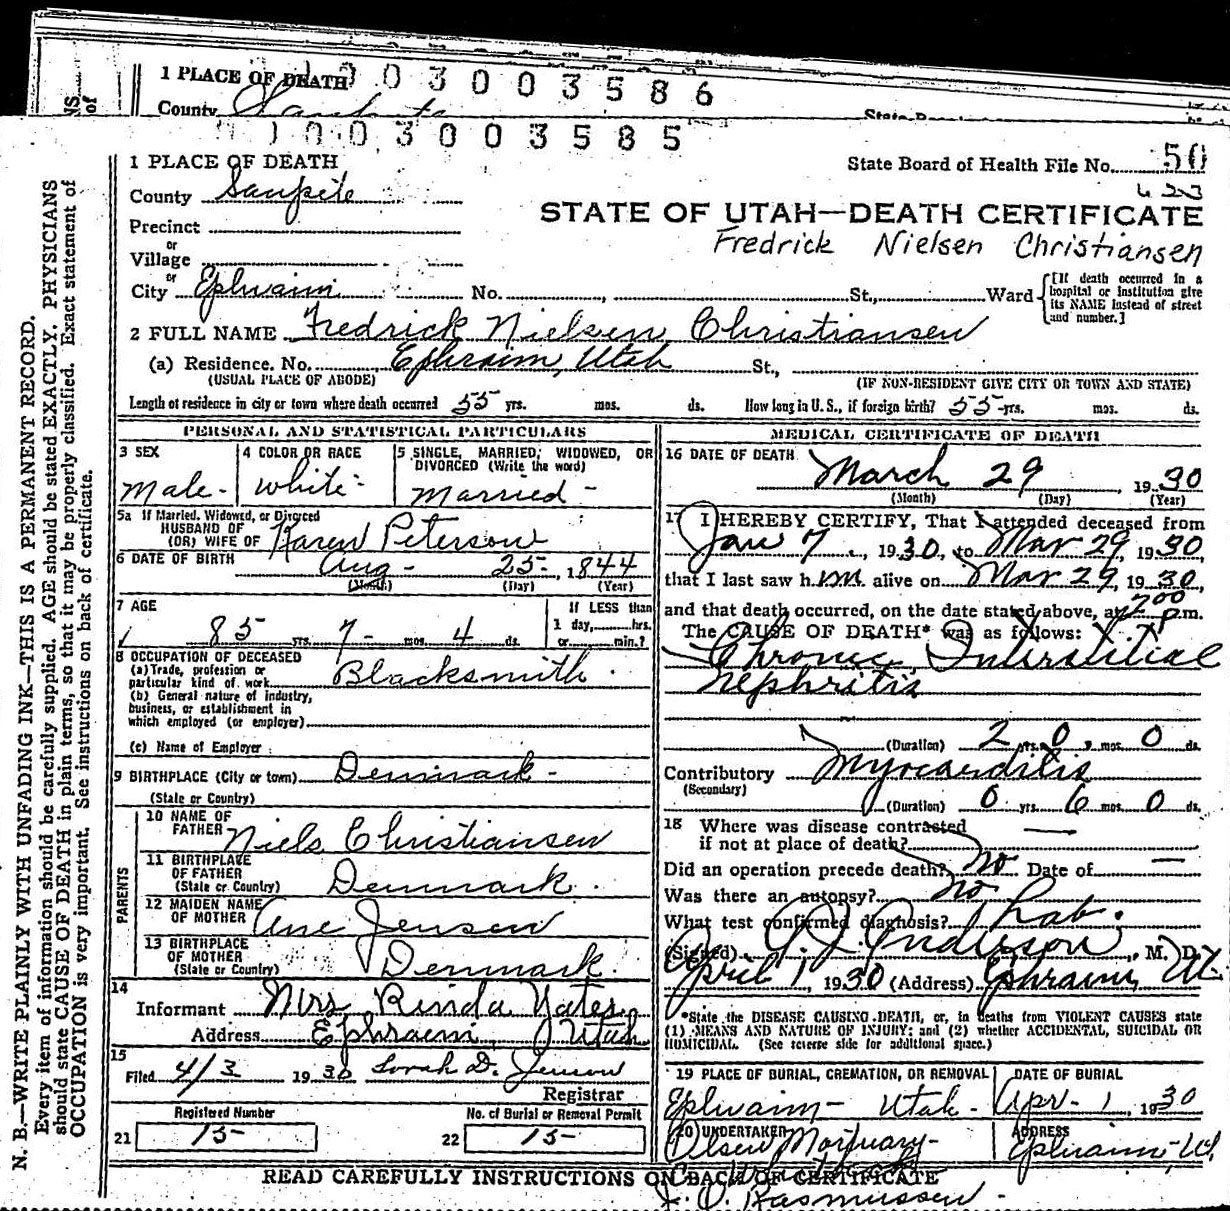 1 PLACE OF DEATH 0 3 0 0 3 5 8 6
County
State
0 0 3 0 0 3 5 8 5
1 PLACE OF DEATH
State Board of Health File No. 50
423
County Sanpete
STATE OF UTAH—DEATH CERTIFICATE
Precinct
Fredrick Nielsen Christiansen
or
Village
or
City Ephraim No. , St., Ward
[If death occurred in a hospital or institution give its NAME instead of street and number.]
2 FULL NAME Fredrick Nielsen Christiansen
(a) Residence. No. Ephraim, Utah St.,
(USUAL PLACE OF ABODE) (IF NON-RESIDENT GIVE CITY OR TOWN AND STATE)
Length of residence in city or town where death occurred 55 yrs. mos. ds. How long in U. S., if foreign birth? 55 yrs. mos. ds.
PERSONAL AND STATISTICAL PARTICULARS
3 SEX 4 COLOR OR RACE 5 SINGLE, MARRIED, WIDOWED, OR
DIVORCED (Write the word)
Male- white- Married-
5a If Married, Widowed, or Divorced
HUSBAND OF
(OR) WIFE OF Karen Peterson
6 DATE OF BIRTH Aug- 25- 1844
(Month) (Day) (Year)
7 AGE If LESS than
1 day, hrs.
85 yrs. 7- mos. 4 ds. or min.?
8 OCCUPATION OF DECEASED
(a) Trade, profession or
particular kind of work Blacksmith
(b) General nature of industry,
business, or establishment in
which employed (or employer)
(c) Name of Employer
9 BIRTHPLACE (City or town) Denmark-
(State or Country)
PARENTS
10 NAME OF
FATHER Niels Christiansen
11 BIRTHPLACE
OF FATHER
(State or Country) Denmark.
12 MAIDEN NAME
OF MOTHER Ane Jensen
13 BIRTHPLACE
OF MOTHER
(State or Country) Denmark.
14
Informant Mrs. Rinda Yates
Address Ephraim, Utah
15
Filed 4/3 1930 Sorah D. Jenson
Registrar
Registered Number No. of Burial or Removal Permit
21 15- 22 15-
MEDICAL CERTIFICATE OF DEATH
16 DATE OF DEATH
March 29, 1930
(Month) (Day) (Year)
17 I HEREBY CERTIFY, That I attended deceased from
Jan 7, 1930, to Mar 29, 1930
that I last saw him alive on Mar 29, 1930,
and that death occurred, on the date stated above, at 2:00 p.m.
The CAUSE OF DEATH* was as follows:
Chronic Interstitial
Nephritis
(Duration) 2 yrs. 0 mos. 0 ds.
Contributory Myocarditis
(Secondary)
(Duration) 0 yrs. 6 mos. 0 ds.
18 Where was disease contracted
if not at place of death?
Did an operation precede death? no Date of —
Was there an autopsy? no
What test confirmed diagnosis? Lab.
(Signed) Anderson, M. D.
April 1, 1930 (Address) Ephraim, Ut.
*State the DISEASE CAUSING DEATH, or, in deaths from VIOLENT CAUSES state
(1) MEANS AND NATURE OF INJURY; and (2) whether ACCIDENTAL, SUICIDAL OR
HOMICIDAL. (See reverse side for additional space.)
19 PLACE OF BURIAL, CREMATION, OR REMOVAL DATE OF BURIAL
Ephraim- Utah- Apr- 1, 1930
20 UNDERTAKER ADDRESS
Olsen Mortuary- Ephraim, Ut.
READ CAREFULLY INSTRUCTIONS ON BACK OF CERTIFICATE
Rasmussen-
N. B.—WRITE PLAINLY WITH UNFADING INK—THIS IS A PERMANENT RECORD.
Every item of information should be carefully supplied. AGE should be stated EXACTLY. PHYSICIANS
should state CAUSE OF DEATH in plain terms, so that it may be properly classified. Exact statement of
OCCUPATION is very important. See instructions on back of certificate.